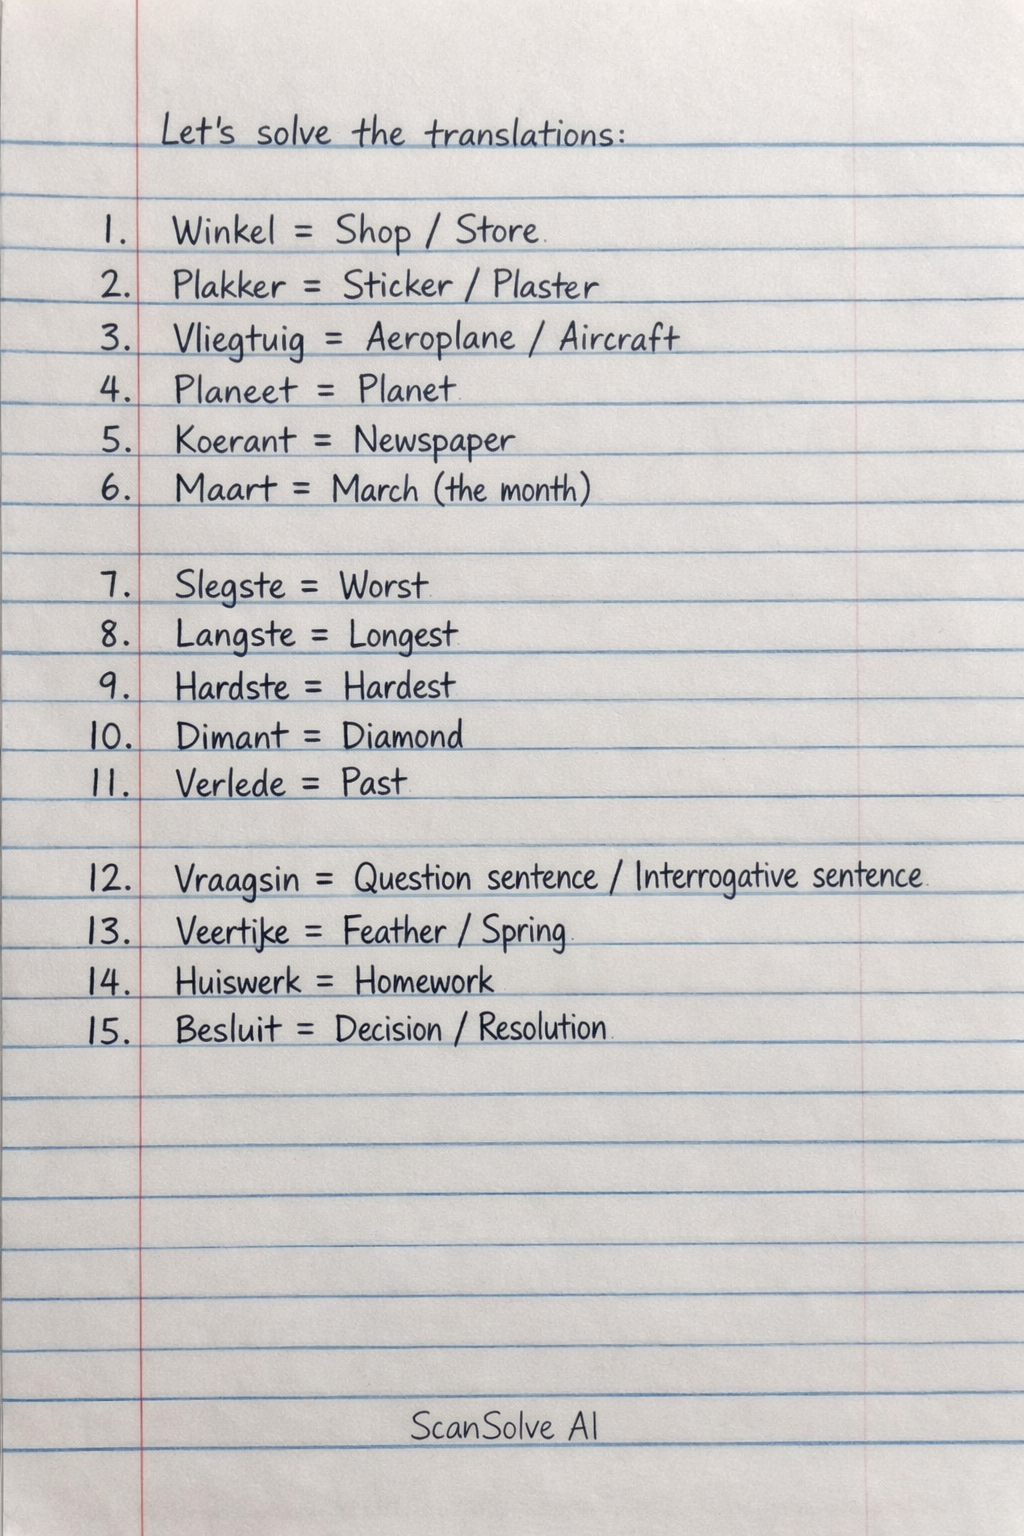 Let's solve the translations:
1. Winkel = Shop / Store.
2. Plakker = Sticker / Plaster
3. Vliegtuig = Aeroplane / Aircraft
4. Planeet = Planet.
5. Koerant = Newspaper
6. Maart = March (the month)
7. Slegste = Worst.
8. Langste = Longest.
9. Hardste = Hardest
10. Dimant = Diamond
11. Verlede = Past.
12. Vraagsin = Question sentence / Interrogative sentence.
13. Veertjke = Feather / Spring.
14. Huiswerk = Homework
15. Besluit = Decision / Resolution.
ScanSolve AI